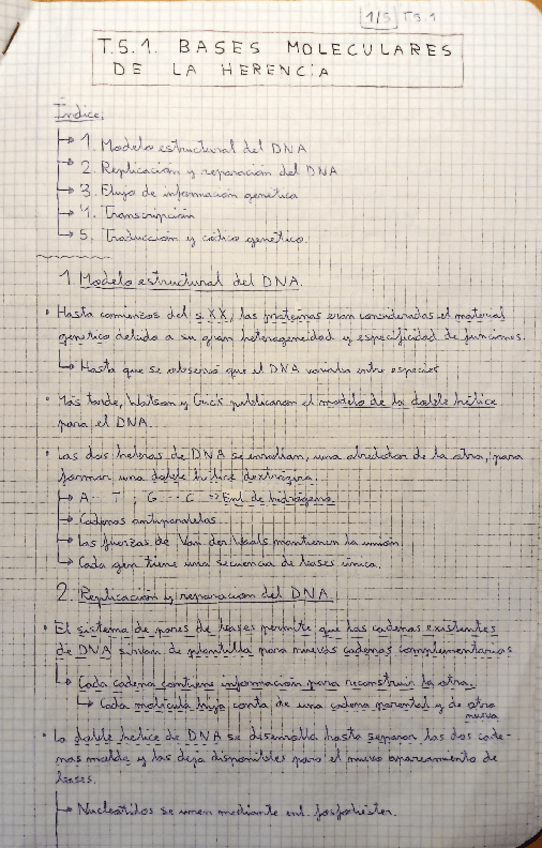 1/5 T5.1
T.5.1. BASES MOLECULARES
DE LA HERENCIA
Índice:
→ 1. Modelo estructural del DNA
→ 2. Replicación y reparación del DNA
→ 3. Flujo de información genética
→ 4. Transcripción
→ 5. Traducción y código genético.
1. Modelo estructural del DNA.
• Hasta comienzos del s.XX, las proteínas eran consideradas el material
genético debido a su gran heterogeneidad y especificidad de funciones.
↳ Hasta que se observó que el DNA variaba entre especies
• Más tarde, Watson y Crick publicaron el modelo de la doble hélice
para el DNA.
• Las dos hebras de DNA se enrollan, una alrededor de la otra, para
formar una doble hélice dextrógira.
→ A··T ; G···C => Enl. de hidrógeno.
→ Cadenas antiparalelas.
→ Las fuerzas de Van der Waals mantienen la unión
→ Cada gen tiene una secuencia de bases única.
2. Replicación y reparación del DNA
• El sistema de pares de bases permite que las cadenas existentes
de DNA sirvan de plantilla para nuevas cadenas complementarias
↳ Cada cadena contiene información para reconstruir la otra.
↳ Cada molécula hija consta de una cadena parental y de otra
nueva
• La doble hélice de DNA se desenrolla hasta separar las dos cade-
nas molde y las deja disponibles para el nuevo apareamiento de
bases.
→ Nucleótidos se unen mediante enl. fosfodiéster.